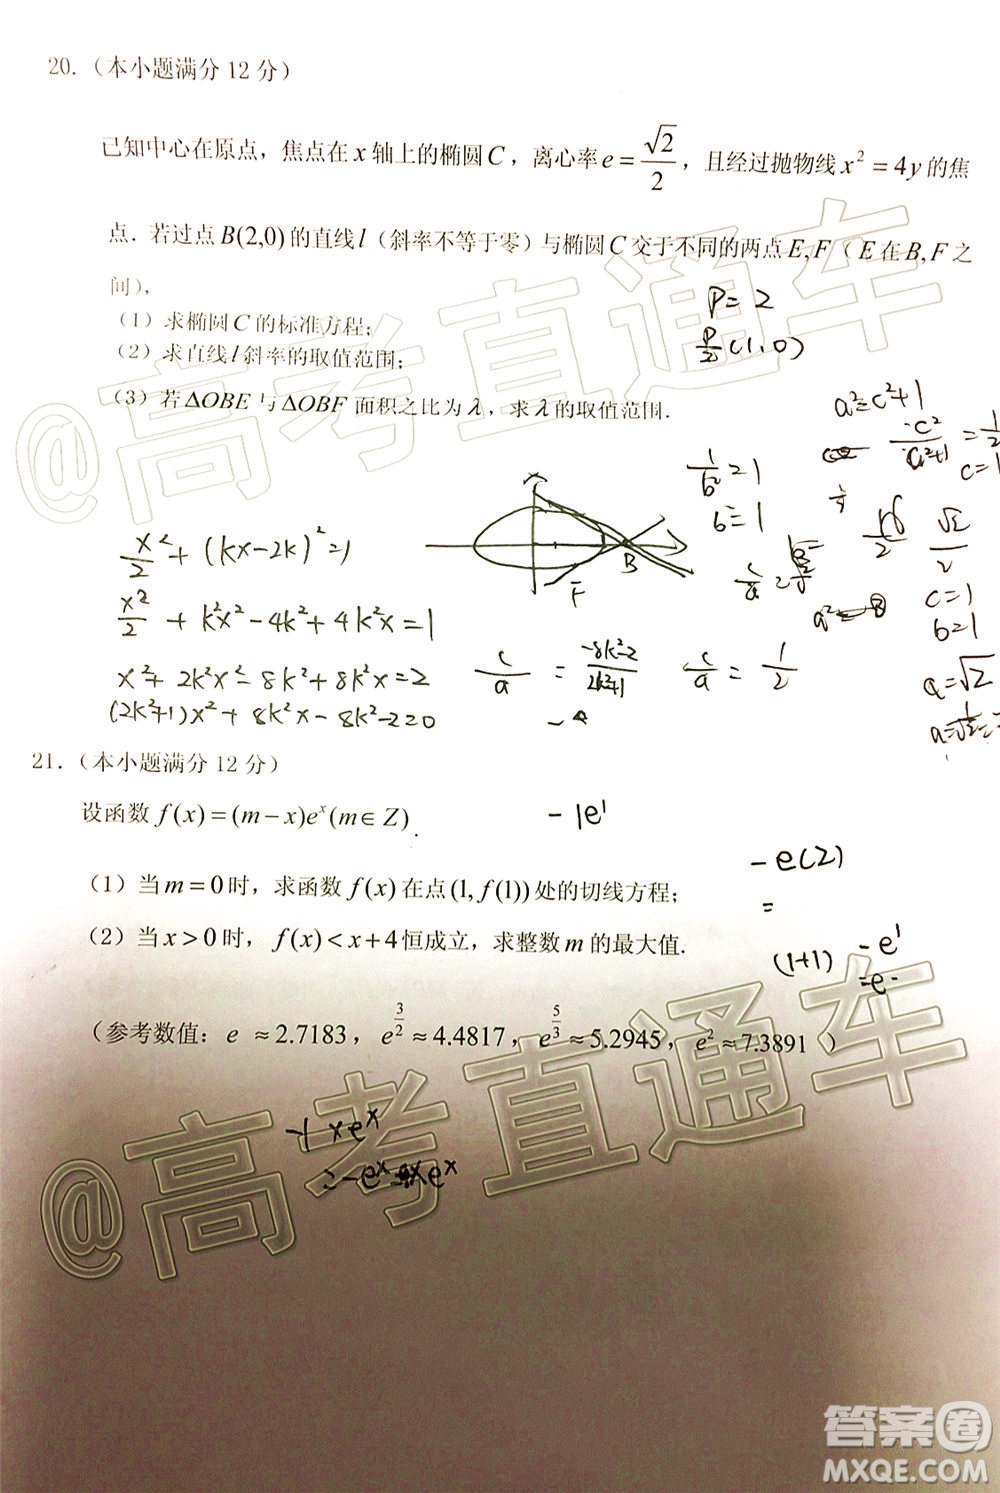 20.（本小题满分 12 分）
已知中心在原点，焦点在 x 轴上的椭圆 C，离心率 e = √2/2，且经过抛物线 x² = 4y 的焦
点．若过点 B(2,0) 的直线 l（斜率不等于零）与椭圆 C 交于不同的两点 E, F（E 在 B, F 之
间），
P = 2
（1）求椭圆 C 的标准方程；
P/2 (1,0)
（2）求直线 l 斜率的取值范围；
（3）若 ΔOBE 与 ΔOBF 面积之比为 λ，求 λ 的取值范围．
a² = c²+1
c²/(c²+1) = 1/2
c = 1
1/b² = 1
b = 1
B
F
x²/2 + (kx-2k)² = 1
x²/2 + k²x² - 4k² + 4k²x = 1
x² + 2k²x² - 8k² + 8k²x = 2
(2k²+1)x² + 8k²x - 8k² - 2 = 0
c/a = (-8k²-2)/(2k²+1)
c/a = 1/2
√2/2
c = 1
b = 1
a = √2
21．（本小题满分 12 分）
设函数 f(x) = (m − x)eˣ (m ∈ Z)．
- 1e¹
- e(2)
=
（1）当 m = 0 时，求函数 f(x) 在点 (1, f(1)) 处的切线方程；
（2）当 x > 0 时，f(x) < x + 4 恒成立，求整数 m 的最大值.
(1+1) - e¹
= e
（参考数值：e ≈ 2.7183，e^(3/2) ≈ 4.4817，e^(5/3) ≈ 5.2945，e² ≈ 7.3891）
-1 x eˣ
@高考直通车
@高考直通车
答案圈
MXQE.COM